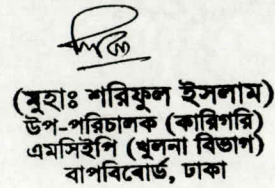 (মুহাঃ শরিফুল ইসলাম)
উপ-পরিচালক (কারিগরি)
এমসিইপি (খুলনা বিভাগ)
বাপবিবোর্ড, ঢাকা